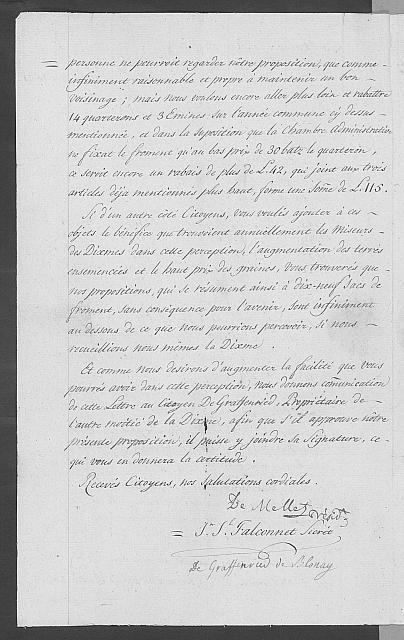 = personne ne pourroit regarder nôtre proposition, que comme
infiniment raisonnable et propre à maintenir un bon
voisinage; mais nous voulons encore aller plus loin et rabattre
14 quarterons et 3 Emines sur l'année commune cy dessus
mentionnée, et dans la suposition que la Chambre Administrative
ne fixat le froment qu'au bas prix de 30 batz le quarteron,
ce seroit encore un rabais de plus de L. 42, qui joint aux trois
articles déja mentionnés plus haut, forme une Some de L. 115.
Si d'un autre côté Citoyens, vous voulés ajouter à ces
objets le bénéfice que trouvoient annuellement les Miseurs
des Dixmes dans cette perception, l'augmentation des terres
ensemencées et le haut prix des graines, vous trouverés que
nos propositions, qui se résument ainsi à dix-neuf Sacs de
froment, sans conséquence pour l'avenir, sont infiniment
au dessous de ce que nous pourrions percevoir, Si nous
recueillions nous mêmes la Dixme.
Et comme nous desirons d'augmenter la facilité que vous
pourrés avoir dans cette perception, nous donnons comunication
de cette Lettre au Citoyen De Graffenried, Propriétaire de
l'autre moitié de la Dixme, afin que S'il approuve nôtre
présente proposition, il puisse y joindre sa Signature, ce
qui vous en donnera la certitude.
Recevés Citoyens, nos Salutations cordiales.
De Mellet présidt
= Jn. Js. Falconnet Secrét
De Graffenried de Blonay